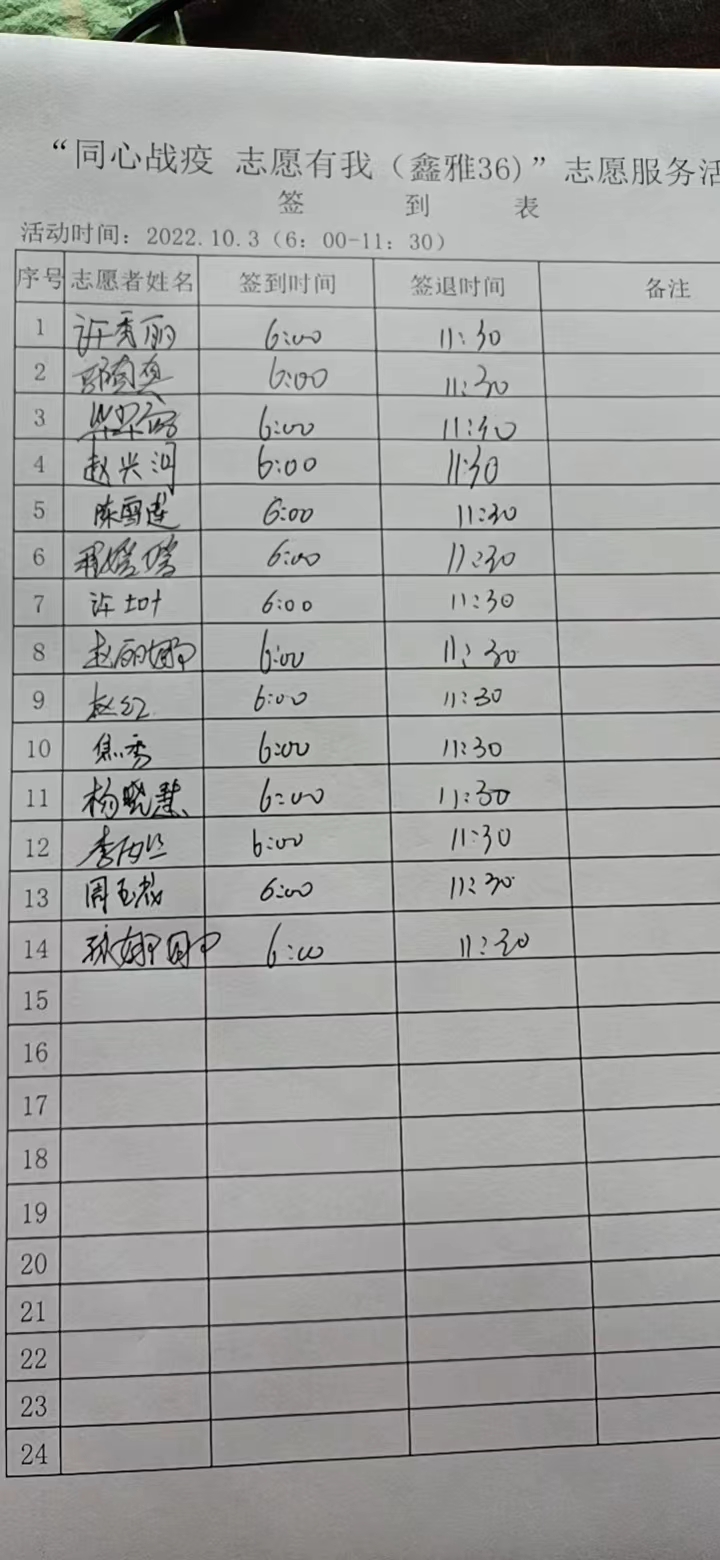 “同心战疫 志愿有我（鑫雅36）”志愿服务活
签 到 表
活动时间：2022.10.3（6：00-11：30）
序号 志愿者姓名 签到时间 签退时间 备注
1 许秀丽 6:00 11:30
2 6:00 11:30
3 6:00 11:30
4 赵兴润 6:00 11:30
5 陈雪莲 6:00 11:30
6 6:00 11:30
7 许 6:00 11:30
8 赵丽娜 6:00 11:30
9 赵红 6:00 11:30
10 焦秀 6:00 11:30
11 杨晓慧 6:00 11:30
12 李 6:00 11:30
13 周玉 6:00 11:30
14 娜 6:00 11:30
15
16
17
18
19
20
21
22
23
24